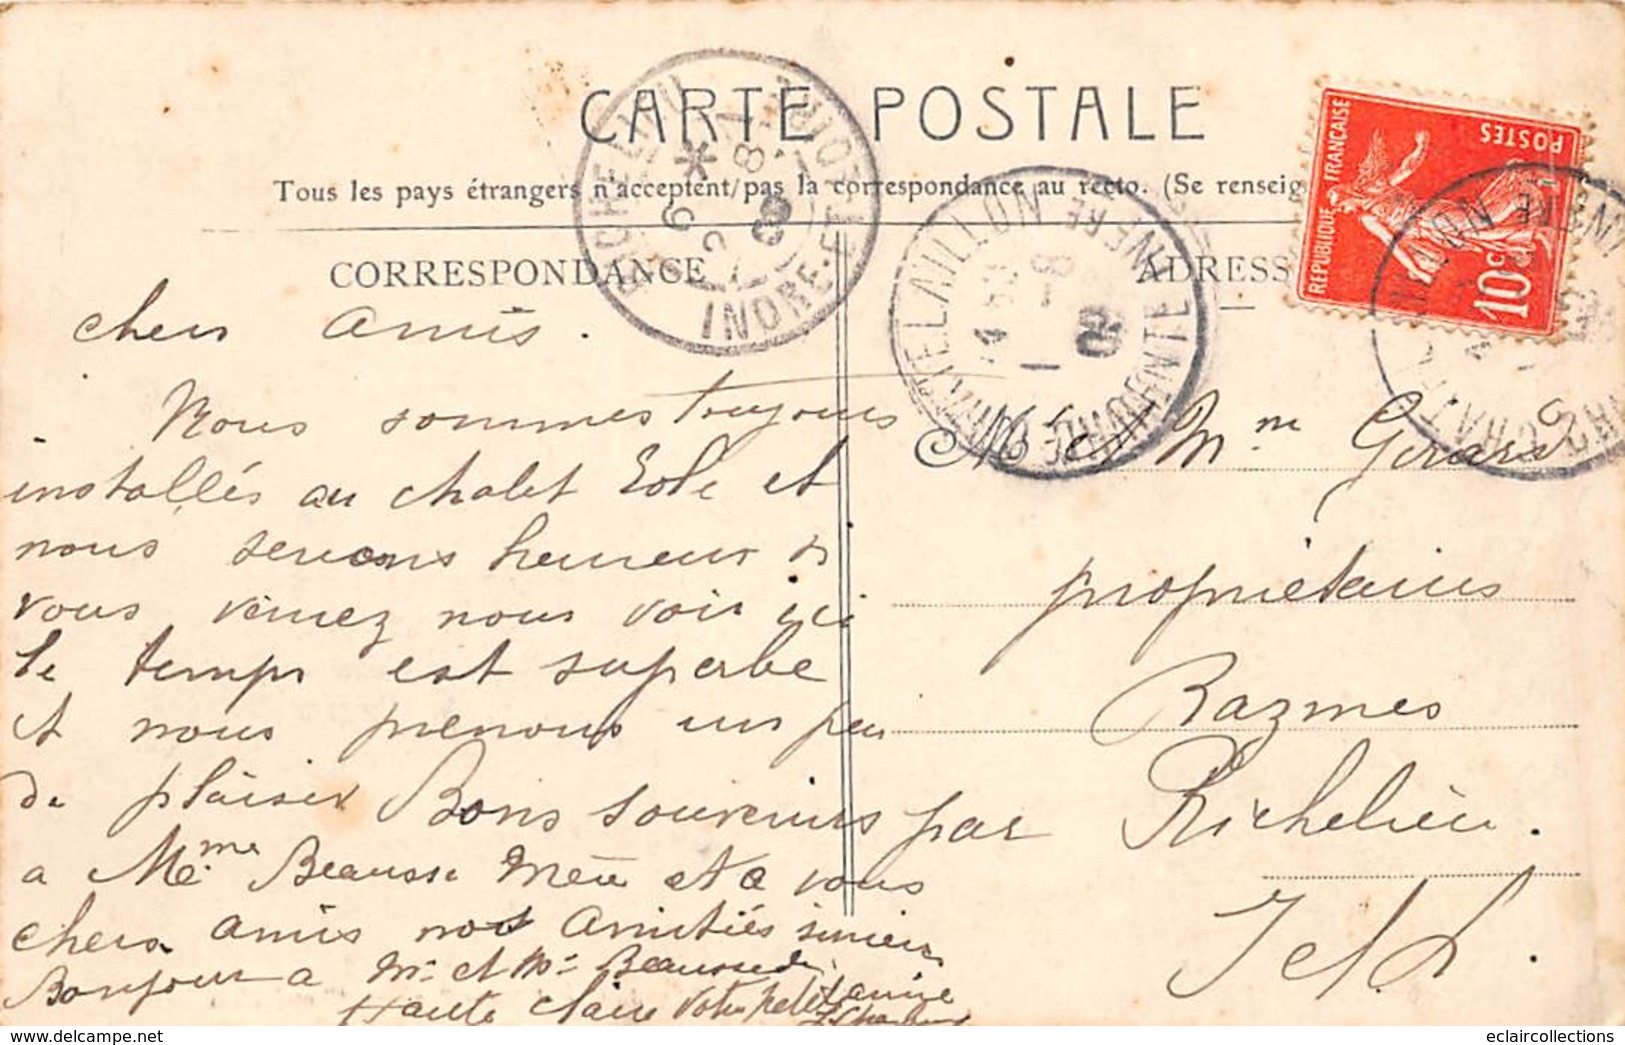 CARTE POSTALE
Tous les pays étrangers n'acceptent pas la correspondance au recto. (Se renseig
CORRESPONDANCE
ADRESS
RÉPUBLIQUE FRANÇAISE
POSTES
10c
RICHELIEU
INDRE-ET-LOIRE
CHATELAILLON
CHARENTE INFRE
chers amis.
Nous sommes toujours
installés au chalet Eole et
nous serions heureux si
vous veniez nous voir ici
le temps est superbe
et nous prenons un peu
de plaisir Bons souvenirs
a Me.me Beausse mère et a vous
chers amis nos amitiés
Bonjour a Mr et Me Beausse de
Haute claire votre
M et Mme Girard
propriétaires
Razines
par Richelieu.
I et L.
eclaircollections